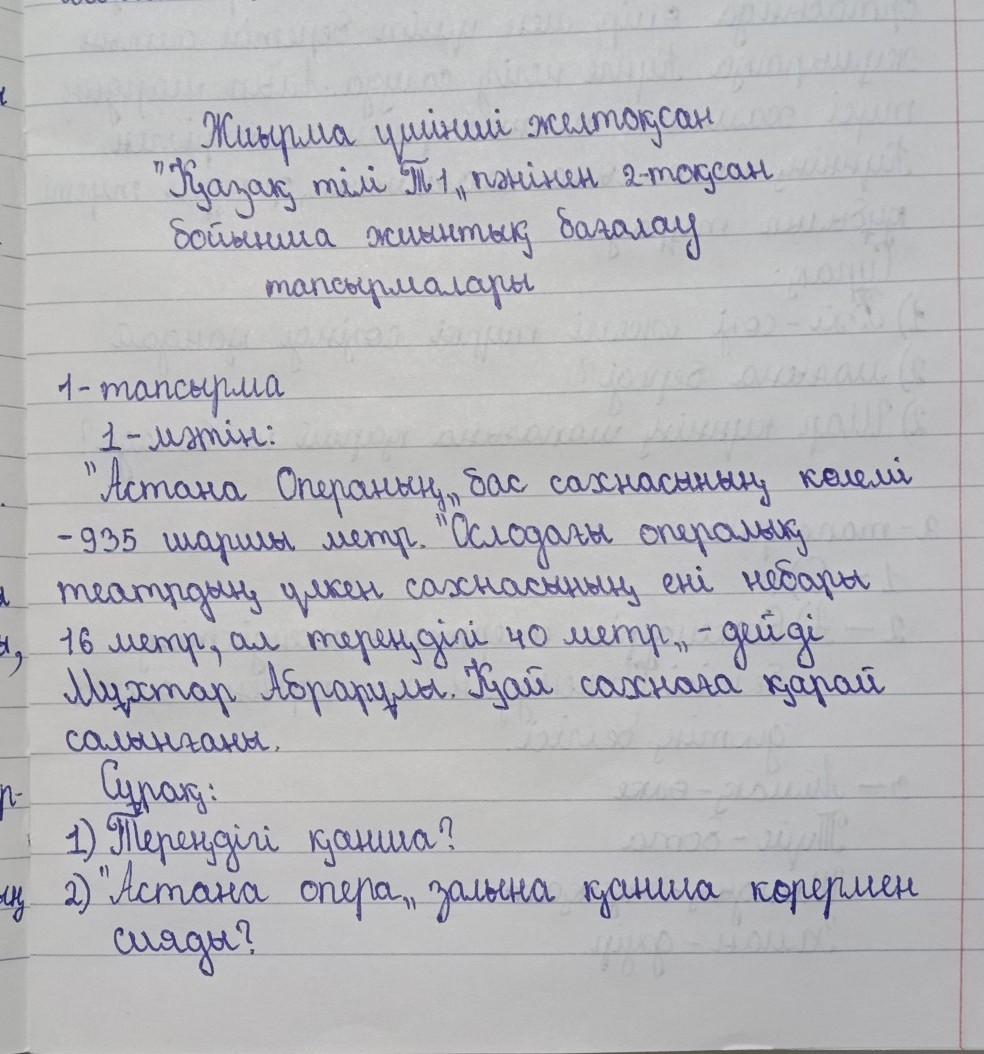 Жиырма үшінші желтоқсан
"Қазақ тілі Т1„ пәнінен 2-тоқсан
бойынша жиынтық бағалау
тапсырмалары
1- тапсырма
1 - мәтін:
"Астана Операның„ бас сахнасының көлемі
- 935 шаршы метр. "Ослодағы опералық
театрдың үлкен сахнасының ені небары
16 метр, ал тереңдігі 40 метр„ - дейді
Мұхтар Абрарұлы. Қай сахнаға қарай
салынғаны.
Сұрақ:
1) Тереңдігі қанша?
2) "Астана опера„ залына қанша көрермен
сияды?